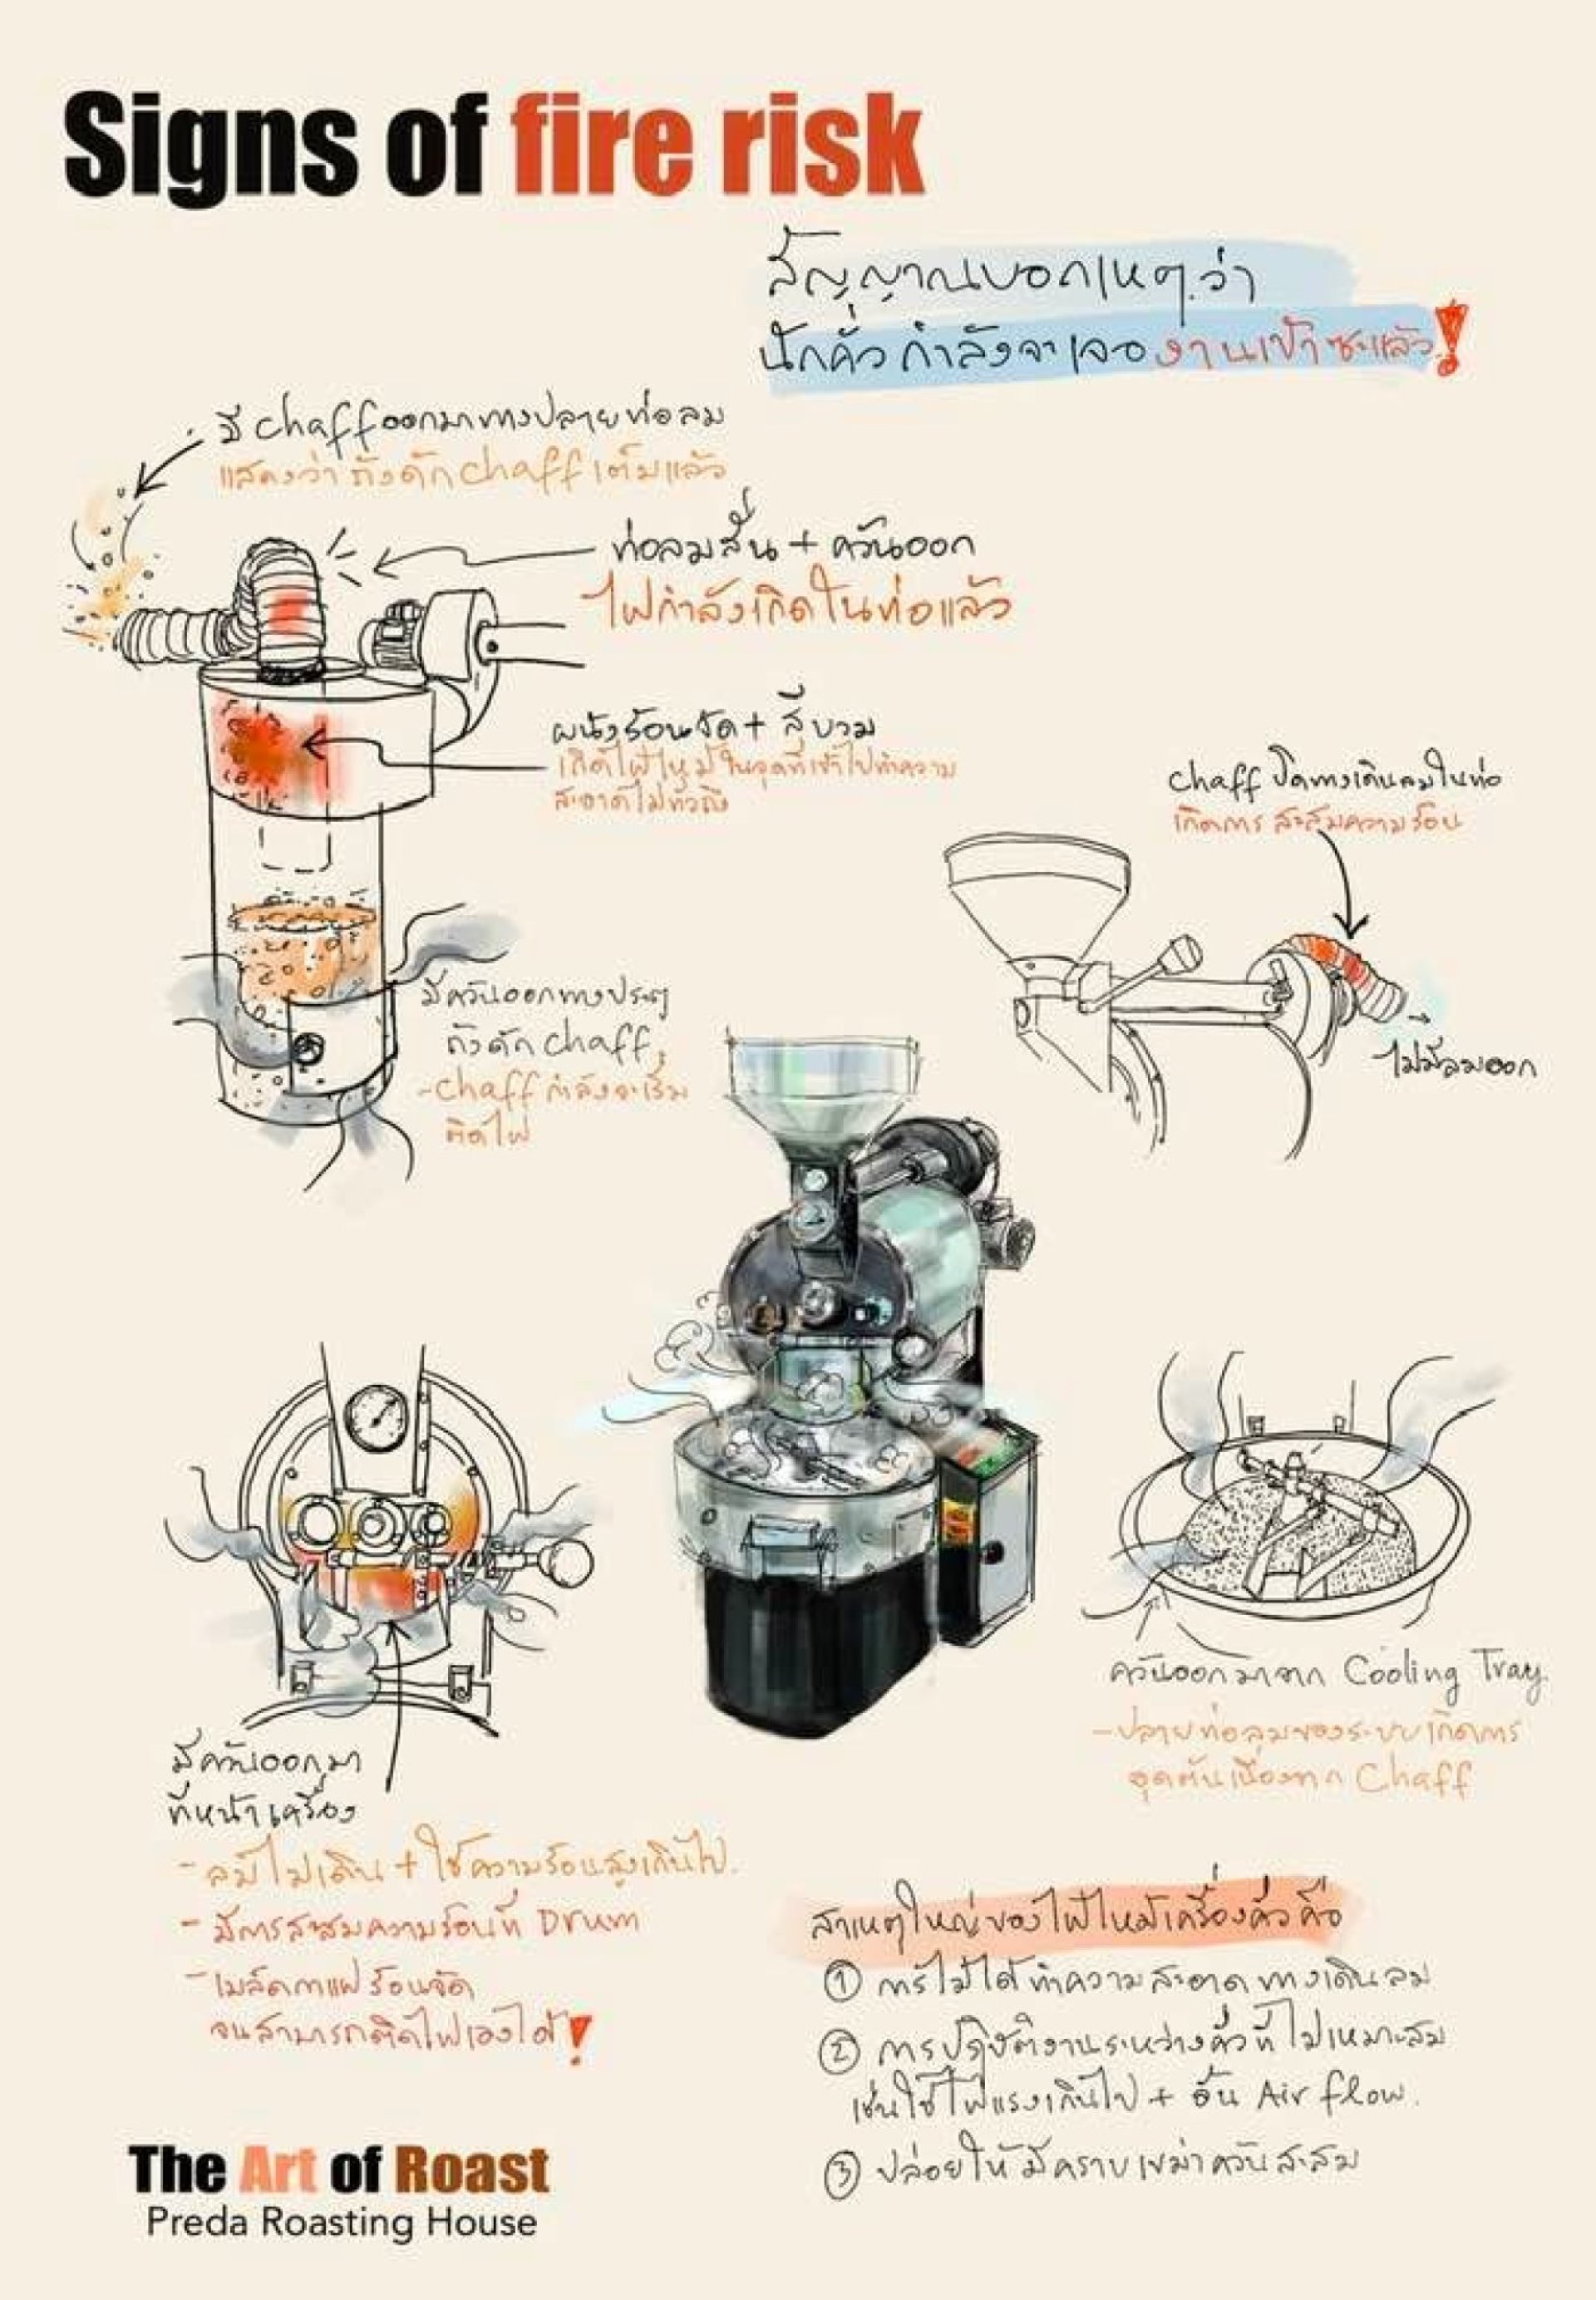 Signs of fire risk
สัญญาณบอกเหตุว่า
นักคั่วกำลังจะเจองานเข้าซะแล้ว!
มี chaff ออกมาทางปลายท่อลม
แสดงว่าถังดัก chaff เต็มแล้ว
ท่อลมสั่น + ควันออก
ไฟกำลังเกิดในท่อแล้ว
ผนังร้อนจัด + สีบวม
เกิดไฟไหม้ในจุดที่เข้าไปทำความ
สะอาดไม่ทั่วถึง
มีควันออกทางประตู
ถังดัก chaff
-chaff กำลังจะเริ่ม
ติดไฟ
chaff ปิดทางเดินลมในท่อ
เกิดการสะสมความร้อน
ไม่มีลมออก
มีควันออกมา
ที่หน้าเครื่อง
- ลมไม่เดิน + ใช้ความร้อนสูงเกินไป.
- มีการสะสมความร้อนที่ Drum
- เมล็ดกาแฟร้อนจัด
จนสามารถติดไฟเองได้!
ควันออกมาจาก Cooling Tray
- ปลายท่อลมของระบบเกิดการ
อุดตันเนื่องจาก Chaff
สาเหตุใหญ่ของไฟไหม้เครื่องคั่วคือ
① การไม่ได้ทำความสะอาดทางเดินลม
② การปฏิบัติงานระหว่างคั่วที่ไม่เหมาะสม
เช่นใช้ไฟแรงเกินไป + อั้น Air flow.
③ ปล่อยให้มีคราบเขม่าควันสะสม
The Art of Roast
Preda Roasting House